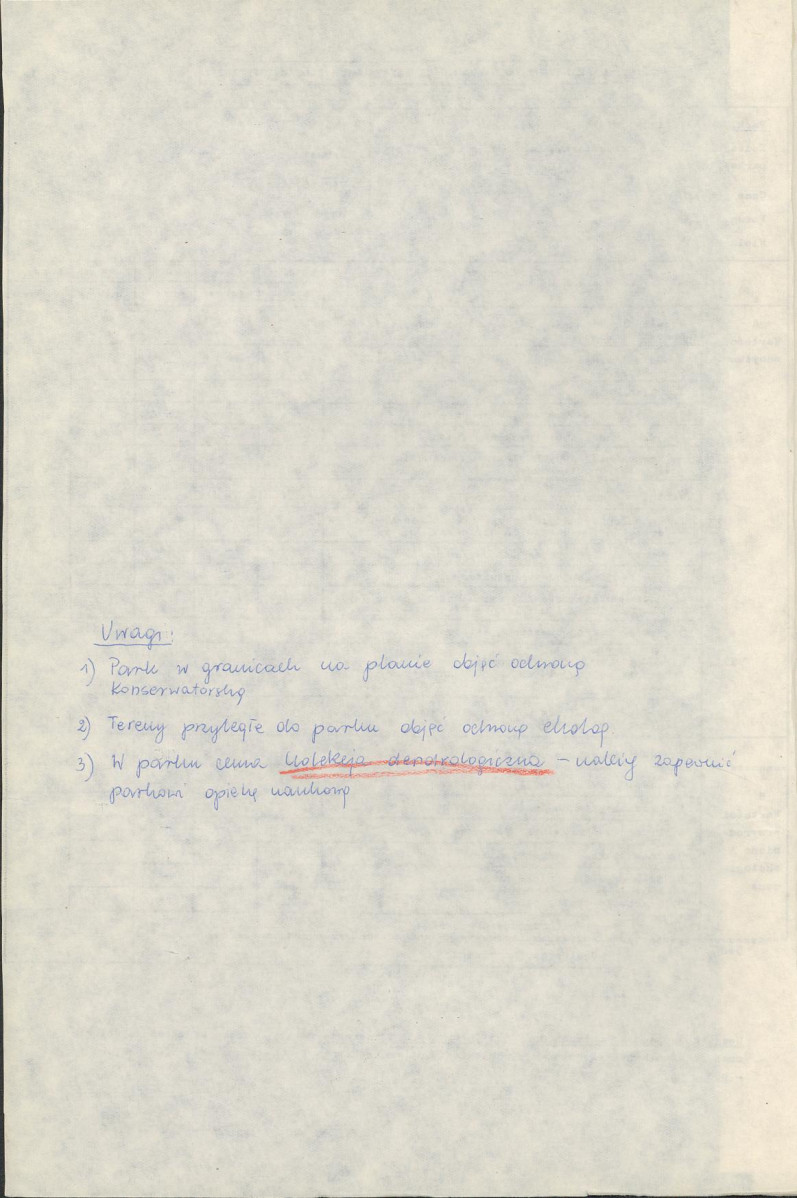 Uwagi:
1) Park w granicach na planie objąć ochroną
Konserwatorską
2) Tereny przyległe do parku objąć ochroną ekolog
3) W parku cenna kolekcja dendrologiczna – należy zapewnić
parkowi opiekę naukową